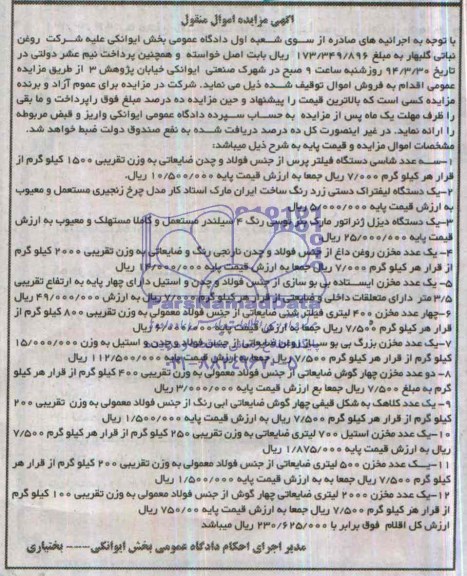 آگهی مزایده اموال منقول
با توجه به اجرائیه های صادره از سوی شعبه اول دادگاه عمومی بخش ایوانکی علیه شرکت روغن
نباتی گلبهار به مبلغ ۱۷۳/۳۴۹/۸۹۶ ریال بابت اصل خواسته و همچنین پرداخت نیم عشر دولتی در
تاریخ ۹۴/۳/۳۰ روزشنبه ساعت ۹ صبح در شهرک صنعتی ایوانکی خیابان پژوهش ۳ از طریق مزایده
عمومی اقدام به فروش اموال توقیف شده ذیل می نماید. شرکت در مزایده برای عموم آزاد و برنده
مزایده کسی است که بالاترین قیمت را پیشنهاد و حین مزایده ده درصد مبلغ فوق راپرداخت و ما بقی
را ظرف مهلت یک ماه پس از مزایده به حساب سپرده دادگاه عمومی ایوانکی واریز و قبض مربوطه
را ارائه نماید. در غیر اینصورت کل ده درصد دریافت شده به نفع صندوق دولت ضبط خواهد شد.
مشخصات اموال مزایده و قیمت پایه به شرح ذیل میباشد:
۱-سه عدد شاسی دستگاه فیلتر پرس از جنس فولاد و چدن ضایعاتی به وزن تقریبی ۱۵۰۰ کیلو گرم از
قرار هر کیلو گرم ۷/۰۰۰ ریال جمعا به ارزش قیمت پایه ۱۰/۵۰۰/۰۰۰ ریال.
۲-یک دستگاه لیفتراک دستی زرد رنگ ساخت ایران مارک استاد کار مدل چرخ زنجیری مستعمل و معیوب
به ارزش قیمت پایه ۵/۰۰۰/۰۰۰ ریال
۳-یک دستگاه دیزل ژنراتور مارک بنز طوسی رنگ ۴ سیلندر مستعمل و کاملا مستهلک و معیوب به ارزش
قیمت پایه ۲۵/۰۰۰/۰۰۰ ریال
۴- یک عدد مخزن روغن داغ از جنس فولاد و چدن نارنجی رنگ و ضایعاتی به وزن تقریبی ۲۰۰۰ کیلو گرم
از قرار هر کیلو گرم ۷/۰۰۰ ریال جمعا به ارزش قیمت پایه ۱۴/۰۰۰/۰۰۰ ریال
۵- یک عدد مخزن ایستاده بی بو سازی از جنس فولاد و چدن و استیل دارای چهار پایه به ارتفاع تقریبی
۳/۵ متر دارای متعلقات داخلی و ضایعاتی از قرار هر کیلو گرم ۷/۰۰۰ ریال به ارزش ۴۹/۰۰۰/۰۰۰ ریال
۶-چهار عدد مخزن ۴۰۰ لیتری فیلتر شنی ضایعاتی از جنس فولاد معمولی به وزن تقریبی ۸۰۰ کیلو گرم از
قرار هر کیلو گرم ۷/۵۰۰ ریال جمعا به ارزش قیمت پایه ریال
۷-یک عدد مخزن بزرگ بی بو ساز روغن ضایعاتی از جنس فولاد و چدن و استیل به وزن ۱۵/۰۰۰/۰۰۰
کیلو گرم از قرار هر کیلو گرم ۷/۵۰۰ ریال جمعا به ارزش قیمت پایه ۱۱۲/۵۰۰/۰۰۰ ریال
۸-دو عدد مخزن چهار گوش ضایعاتی از جنس فولاد معمولی به وزن تقریبی ۴۰۰ کیلو گرم از قرار هر کیلو
گرم به مبلغ ۷/۵۰۰ ریال جمعا بع ارزش قیمت پایه ۳/۰۰۰/۰۰۰ ریال
۹-یک عدد کلاهک به شکل قیفی چهار گوش ضایعاتی ابی رنگ از جنس فولاد معمولی به وزن تقریبی ۲۰۰
کیلو گرم از قرار هر کیلو گرم ۷/۵۰۰ ریال به ارزش قیمت پایه ۱/۵۰۰/۰۰۰ ریال
۱۰-یک عدد مخزن استیل ۷۰۰ لیتری ضایعاتی به وزن تقریبی ۲۵۰ کیلو گرم از قرار هر کیلو گرم ۷/۵۰۰
ریال به ارزش قیمت پایه ۱/۸۷۵/۰۰۰ ریال
۱۱-یک عدد مخزن ۵۰۰ لیتری ضایعاتی از جنس فولاد معمولی به وزن تقریبی ۲۰۰ کیلو گرم از قرار هر
کیلو گرم ۷/۵۰۰ ریال جمعا به به ارزش قیمت پایه ۱/۵۰۰/۰۰۰ ریال
۱۲-یک عدد مخزن ۲۰۰۰ لیتری ضایعاتی چهار گوش از جنس فولاد معمولی به وزن تقریبی ۱۰۰ کیلو گرم
از قرار هر کیلو گرم ۷/۵۰۰ ریال جمعا به ارزش قیمت پایه ۷۵۰/۰۰ ریال
ارزش کل اقلام فوق برابر با ۲۳۰/۶۲۵/۰۰۰ ریال میباشد
مدیر اجرای احکام دادگاه عمومی بخش ایوانکی---- بختیاری